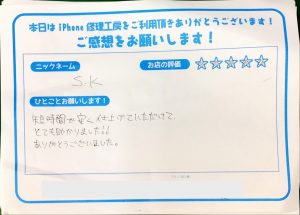 本日は iPhone 修理工房をご利用頂きありがとうございます！
ご感想をお願いします！
ニックネーム
お店の評価
☆☆☆☆☆
S.K
ひとことお願いします！
短時間で安く仕上げていただけて、
とても助かりました!!
ありがとうございました。